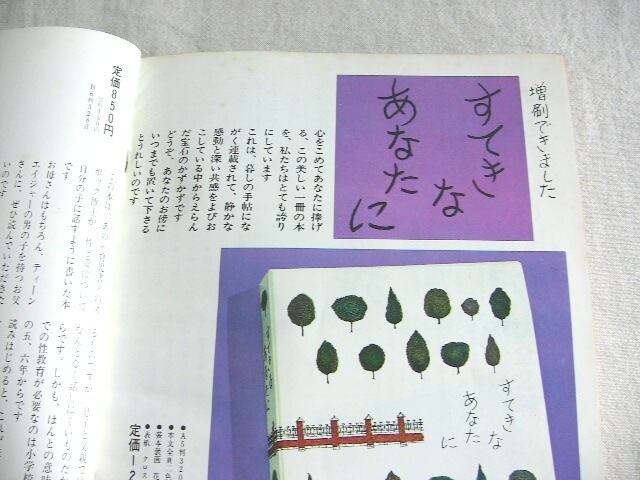 増刷できました
すてき
な
あなた
に
心をこめてあなたに捧げ
る、この美しい一冊の本
を、私たちはとても誇り
にしています
これは、暮しの手帖にな
がく連載されて、静かな
感動と深い共感をよびお
こしている中からえらん
だ宝石のかずかずです
どうぞ、あなたのお傍に
いつまでも置いて下さる
とうれしいのです
すてき
な
あなた
に
●A5判320
●本文全頁二色
●表紙 クロス
定価12
定価850円
B6判328頁
自分の子に話すように書いた本
です
お母さんはもちろん、ティーン
エイジャーの男の子を持つお父
さんに、ぜひ読んでいただきた
いのです
なんとなく話しにくいものだか
らです。しかも、ほんとの意味
での性教育が必要なのは小学校
の五、六年からです
読みはじめると、